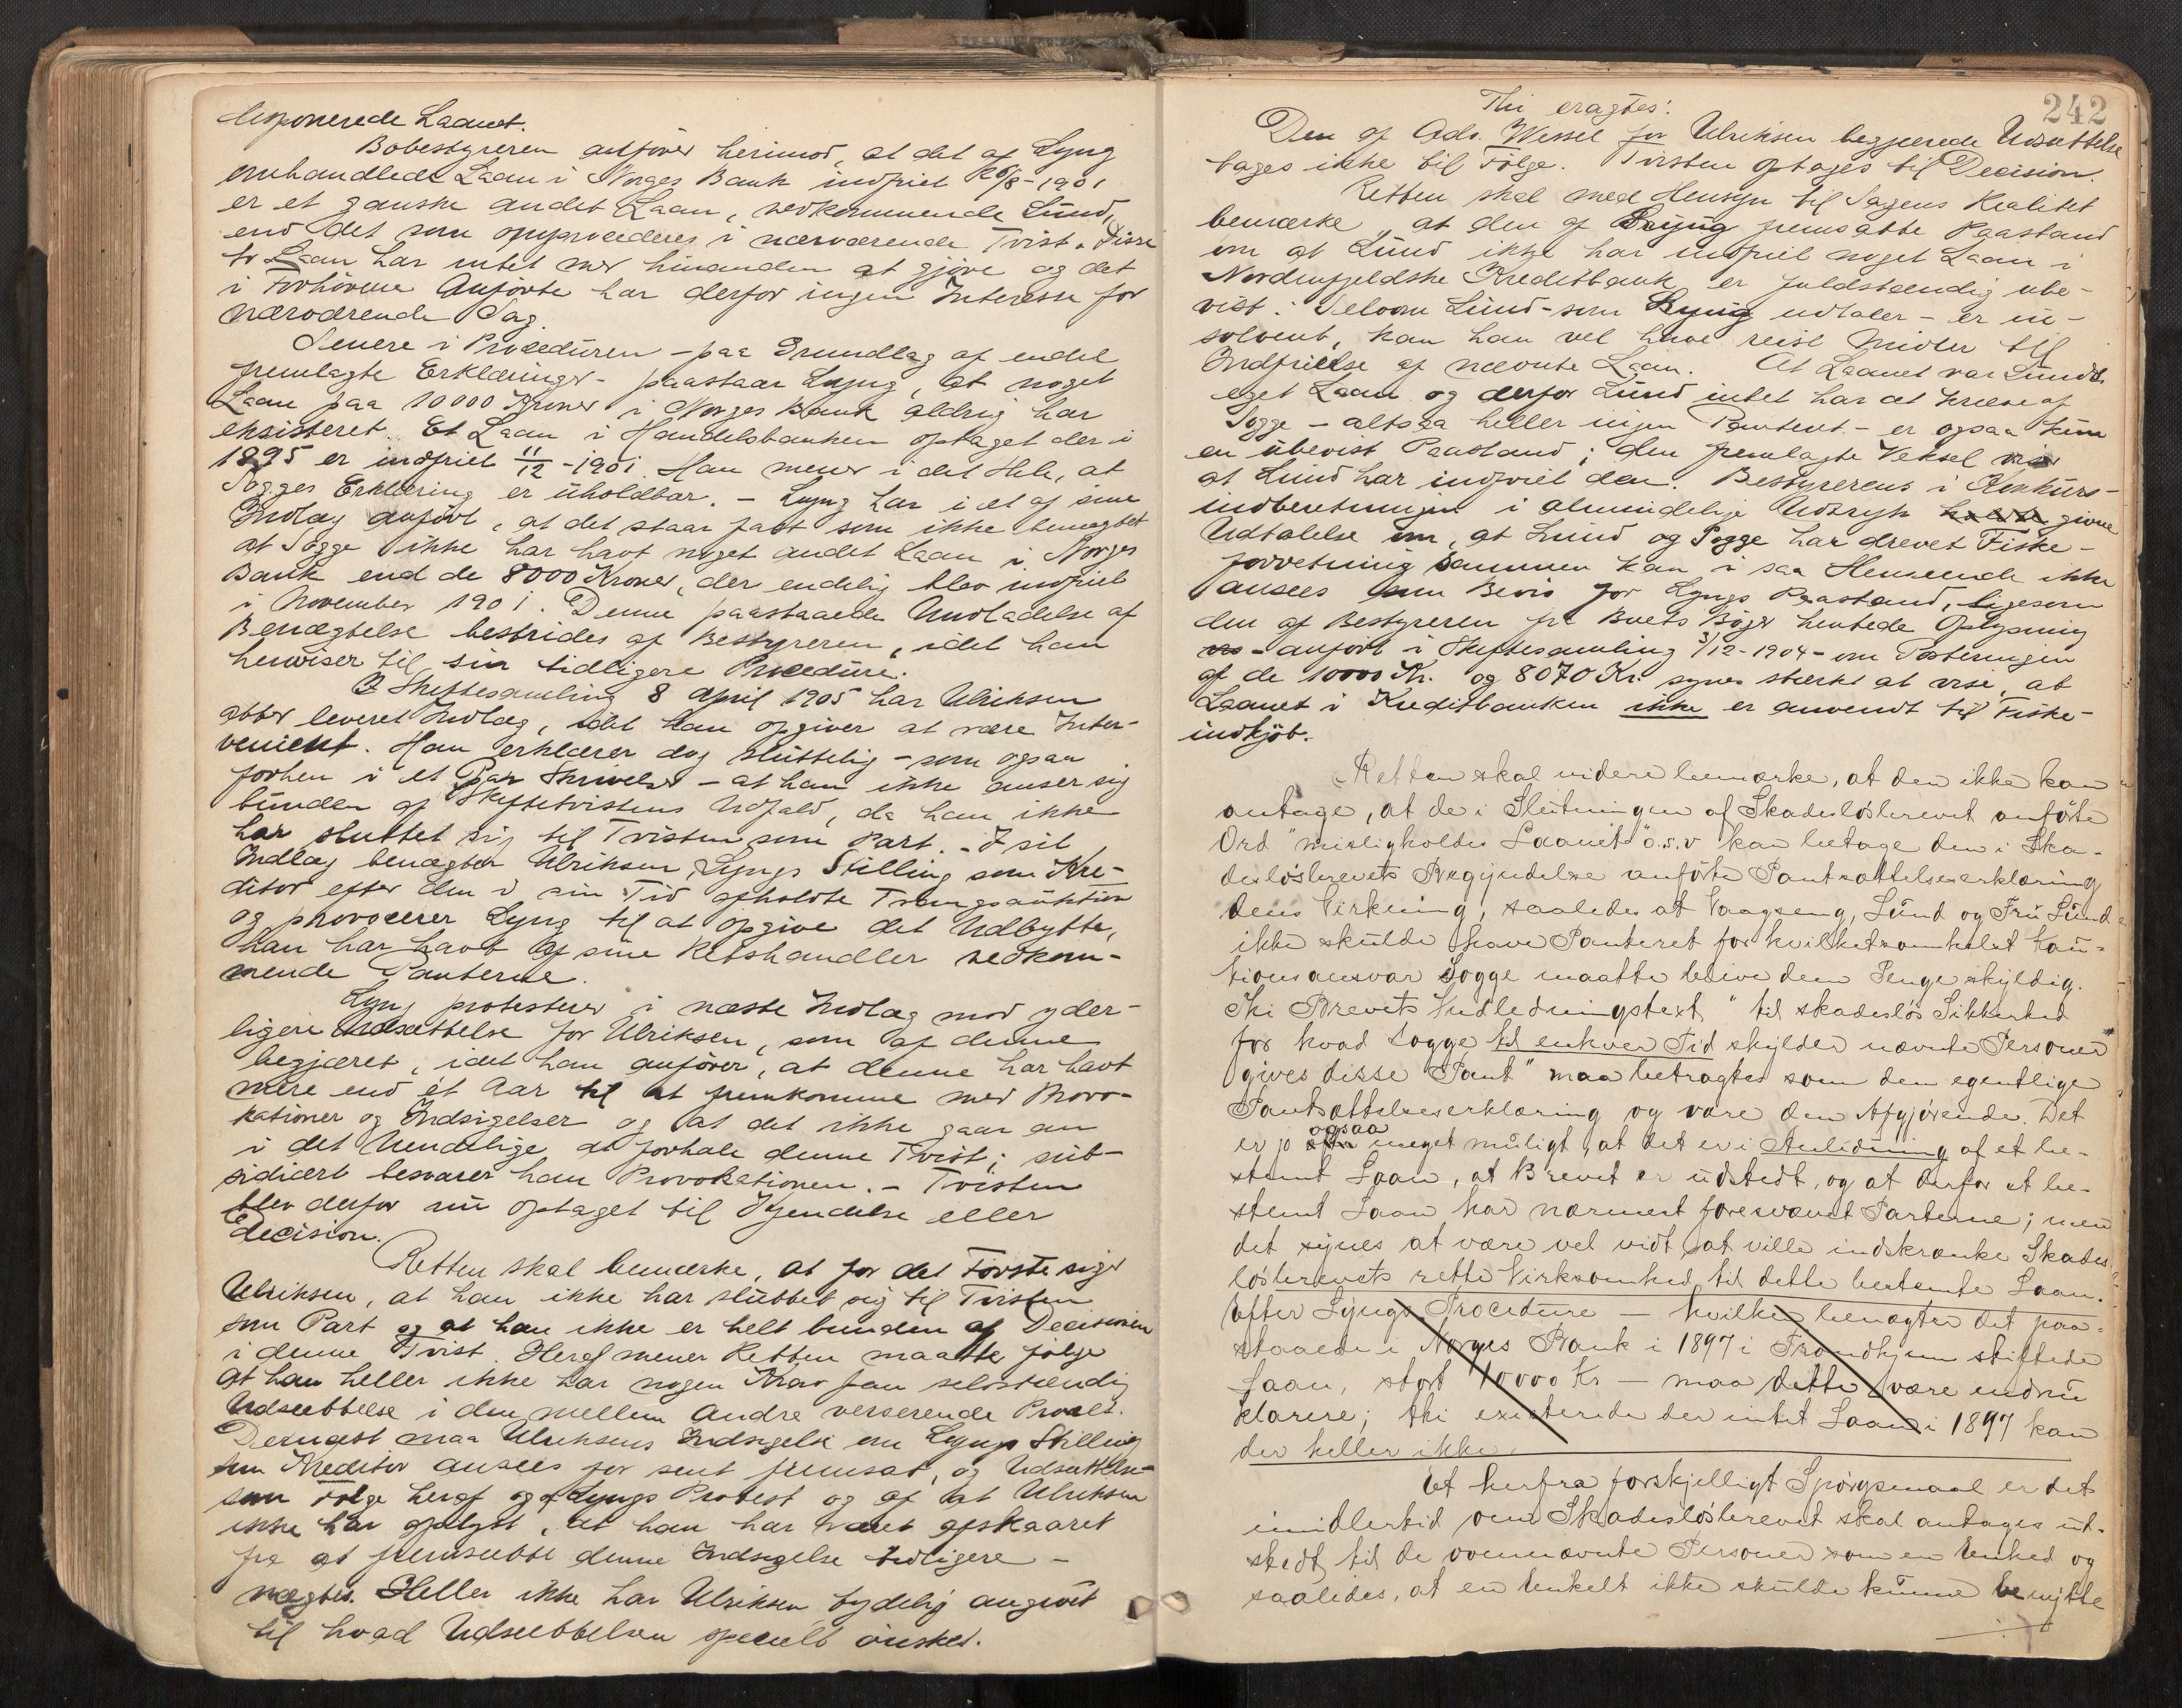 deponerede Laanet.
Bobestyreren anfører herimod, at det af Lyng
omhandlede Laan i Norges Bank indfriet 26/8-1901
er et ganske andet Laan, vedkommende Lund,
end det som opprocederes i nærværende Tvist. Disse
to Laan har intet med hinanden at gjøre og det
i Forhørene Anførte har derfor ingen Interesse for
nærværende Sag.
Senere i Proceduren - paa Grundlag af endel
fremlagte Erklæringer - paastaar Lyng, at noget
Laan paa 10000 Kroner i Norges Bank aldrig har
eksisteret. Et Laan i Handelsbanken optaget der i
1895 er indfriet 11/12-1901. Han mener i det Hele, at
Sogges Erklæring er uholdbar. - Lyng har i et af sine
Indlæg anført, at det staar fast som ikke benægtet
at Sogge ikke har havt noget andet Laan i Norges
Bank end de 8000 Kroner, der endelig blev indfriet
i November 1901. Denne paastaaede Undladelse af
Benægtelse bestrides af Bestyreren, idet han
henviser til sin tidligere Procedure.
I Skiftesamling 8 April 1905 har Ulriksen
atter leveret Indlæg, idet han opgiver at være Inter-
venient. Han erklærer dog sluttelig - som ogsaa
forhen i et Par Skrivelser - at han ikke anser sig
bunden af Skiftetvistens Udfald, da han ikke
har sluttet sig til Tvisten som Part. - I sit
Indlæg benægter Ulriksen Lyngs Stilling som Kre-
ditor efter den i sin Tid afholdte Tvangsauktion
og provocerer Lyng til at opgive det Udbytte,
han har havt af sine Retshandler vedkom-
mende Panterne.
Lyng protesterer i næste Indlæg mod yder-
ligere Udsættelse for Ulriksen, som af denne
begjæret, idet han anfører, at denne har havt
mere end ét Aar til at fremkomme med Provo-
kationer og Indsigelser og at det ikke gaar an
i det Uendelige at forhale denne Tvist; sub-
sidiært besvarer han Provokationen. - Tvisten
blev derfor nu optaget til Kjendelse eller
Decision.
Retten skal bemærke, at for det Første siger
Ulriksen, at han ikke har sluttet sig til Tvisten
som Part og at han ikke er helt bunden af Decisionen
i denne Tvist. Heraf mener Retten maatte følge
at han heller ikke har nogen Krav paa selvstændig
Udsættelse i den mellem Andre verserende Proces.
Dernæst maa Ulriksens Indsigelse om Lyngs Stilling
som Kreditor ansees for sent fremsat, og Udsættelse
som Følge heraf og af Lyngs Protest og af at Ulriksen
ikke har oplyst, at han har været afskaaret
fra at fremsætte denne Indsigelse tidligere -
nægtes. Heller ikke har Ulriksen tydelig angivet
til hvad Udsættelsen specielt ønskes.
242
Thi eragtes:
Den af Adv. Wessel for Ulriksen begjærede Udsættelse
tages ikke til Følge. Tvisten optages til Decision.
Retten skal med Hensyn til Sagens Realitet
bemærke, at den af Lyng fremsatte Paastand
om at Lund ikke har indfriet noget Laan i
Nordenfjeldske Kreditbank er fuldstændig ube-
vist. Selvom Lund - som Lyng udtaler - er in-
solvent, kan han vel have reist Midler til
Indfrielse af nævnte Laan. At Laanet var Lunds
eget Laan og derfor Lund intet har at kræve af
Sogge - altsaa heller ingen Panteret - er ogsaa kun
en ubevist Paastand; den fremlagte Veksel viser
at Lund har indfriet den. Bestyrerens i Konkurs-
indberetningen i almindelige Udtryk holdte givne
Udtalelse om, at Lund og Sogge har drevet Fiske-
forretning sammen kan i saa Henseende ikke
ansees som Bevis for Lyngs Paastand, ligesom
den af Bestyreren fra Boets Bøger hentede Oplysning
- anført i Skiftesamling 3/12-1904 - om Posteringen
af de 10000 Kr. og 8070 Kr. synes stærkt at vise, at
Laanet i Kreditbanken ikke er anvendt til Fiske-
indkjøb.
Retten skal videre bemærke, at den ikke kan
antage, at de i Slutningen af Skadesløsbrevet anførte
Ord "misligholdes Laanet" o.s.v kan betage den i Ska-
desløsbrevets Begyndelse anførte Pantsættelseserklæring
dens Virkning, saaledes at Vaagseng, Lund og Fru Lund
ikke skulde have Panteret for hvilketsomhelst Kau-
tionsansvar Sogge maatte blive dem Penge skyldig.
Thi Brevets Indledningstext "til skadesløs Sikkerhed
for hvad Sogge til enhver Tid skylder nævnte Personer
gives disse Pant" maa betragtes som den egentlige
Pantsættelseserklæring og være den Afgjørende. Det
er jo ogsaa meget muligt, at det er i Anledning af et be-
stemt Laan, at Brevet er udstedt, og at derfor et be-
stemt Laan har nærmest foresvævet Parterne; men
det synes at være vel vidt at ville indskrænke Skades-
løsbrevets rette Virksomhed til dette bestemte Laan.
Efter Lyngs Procedure - hvilken benægter det paa-
staaede i Norges Bank i 1897 i Trondhjem stiftede
Laan, stort 10000 Kr - maa dette være endnu
klarere; thi existerede der intet Laan i 1897 kan
der heller ikke
Et herfra forskjelligt Spørgsmaal er det
imidlertid om Skadesløsbrevet skal antages ud-
stedt til de ovennævnte Personer som en Enhed og
saaledes, at en Enkelt ikke skulde kunne benytte